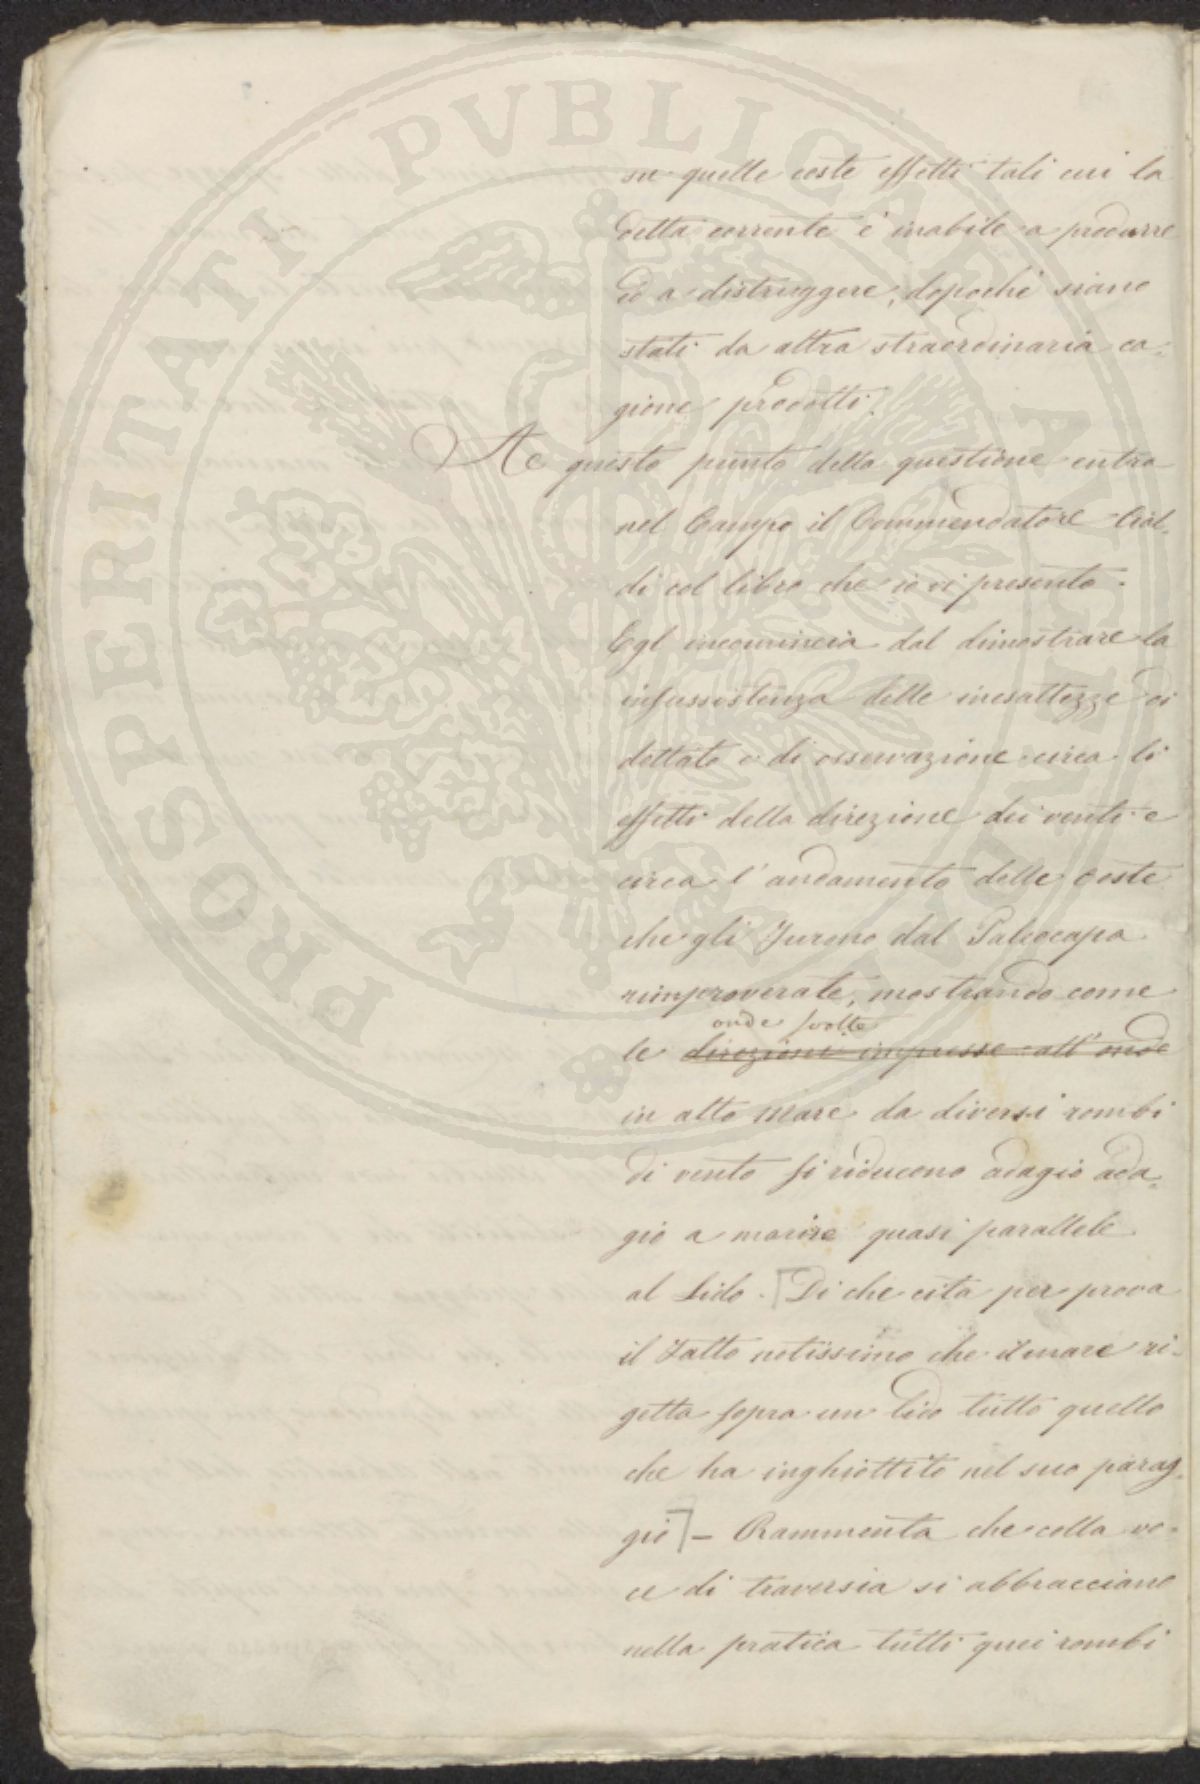 su quelle coste effetti tali cui la
detta corrente è inabile a produrre
ed a distruggere, dopochè siano
stati da altra straordinaria ca-
gione prodotti.
A questo punto della questione entra
nel Campo il Commendatore Cial-
di col libro che io vi presento.
Egl incomincia dal dimostrare la
insussistenza delle inesattezze di
dettato e di osservazione circa li
effetti della direzione dei venti e
circa l'andamento delle coste
che gli furono dal Paleocapa
rimproverate, mostrando come
onde svolte
le direzioni impresse all'onde
in alto mare da diversi rombi
di vento si riducono adagio ada-
gio a morire quasi parallele
al Lido. [Di che cita per prova
il fatto notissimo che il mare ri-
getta sopra un lido tutto quello
che ha inghiottito nel suo parag-
gio] – Rammenta che colla vo-
ce di traversia si abbracciano
nella pratica tutti quei rombi
PROSPERITATI PVBLICAE AVGENDAE